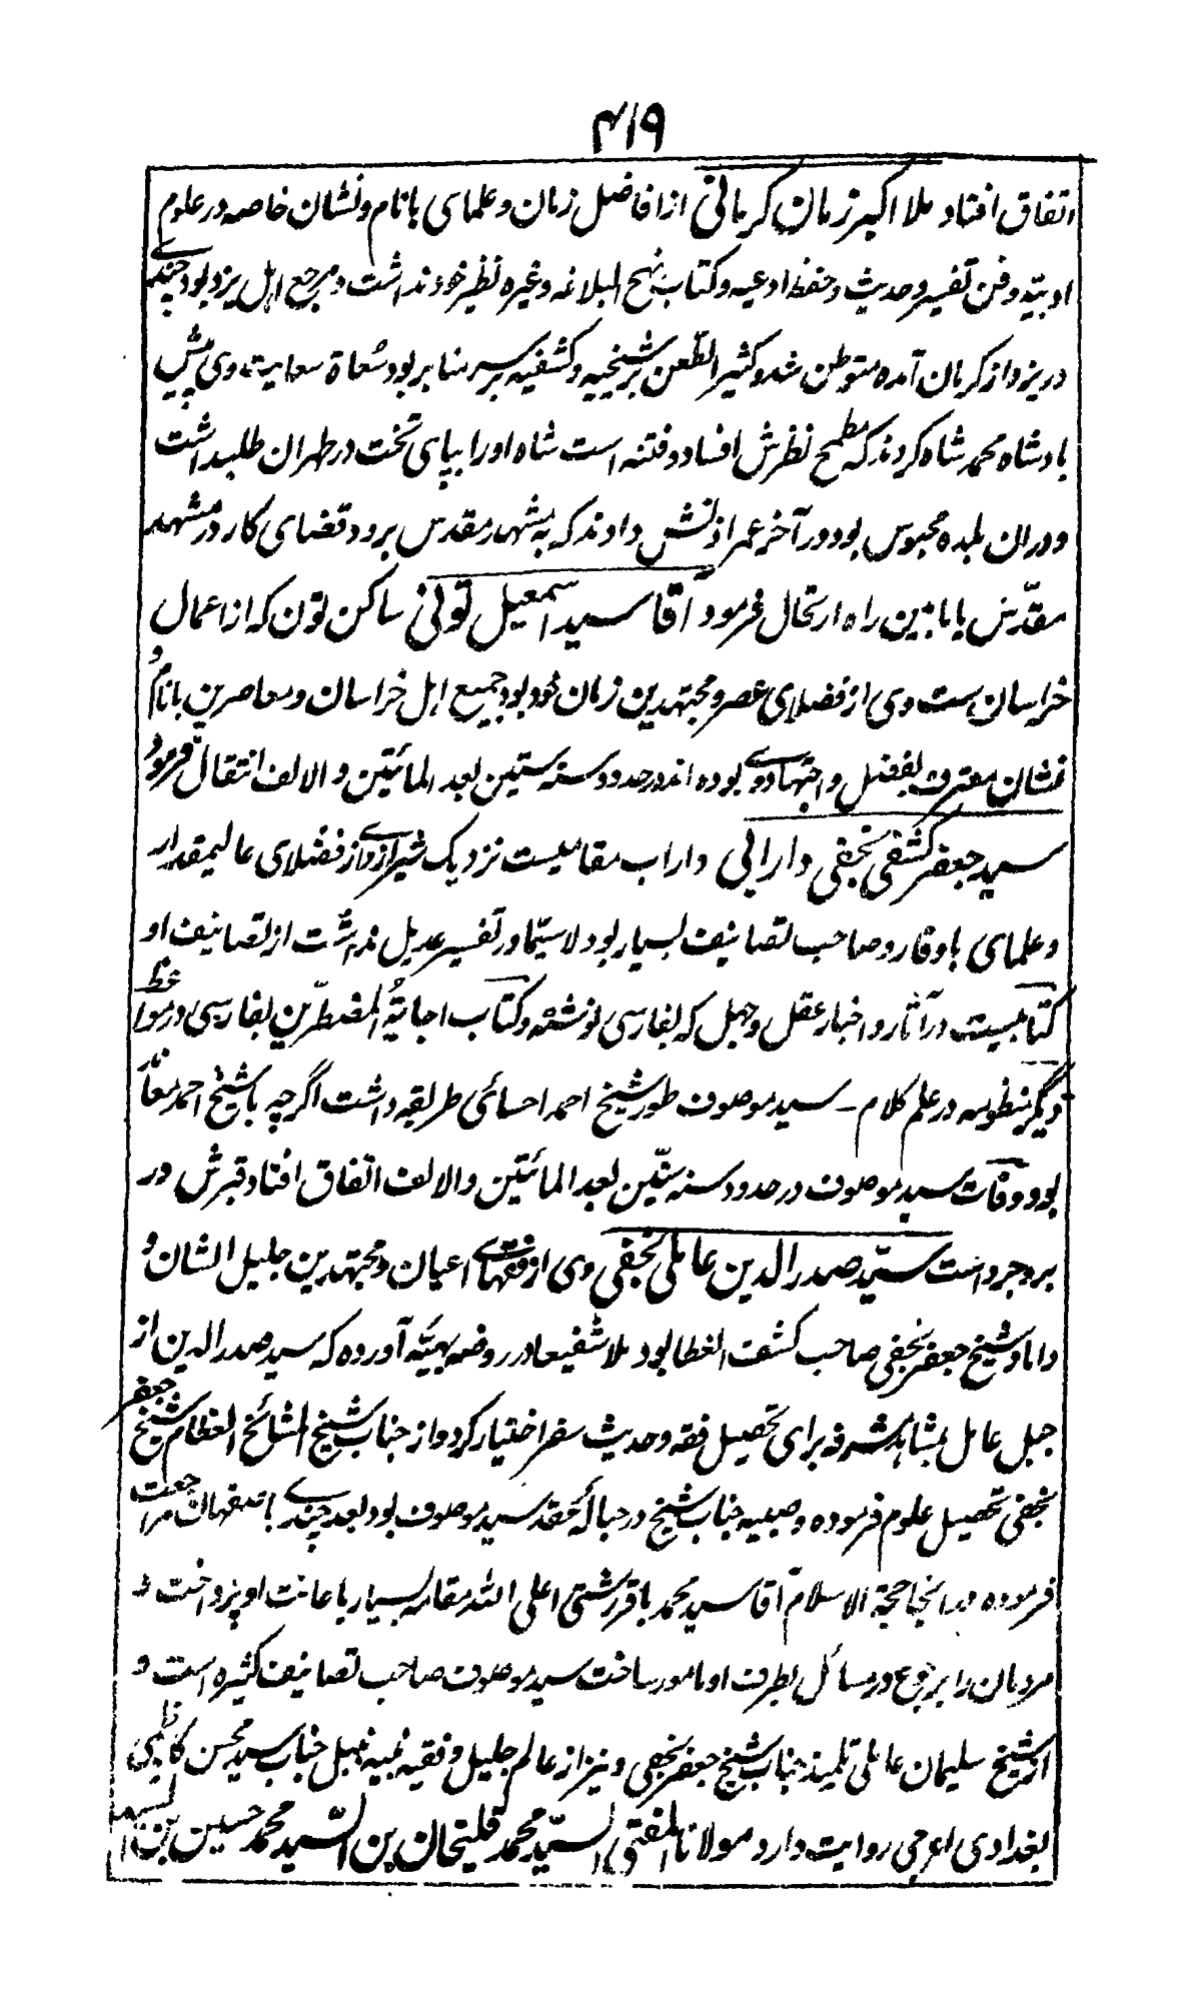 ۴۱۹
اتفاق افتاد ملا اکبر زمان کرمانی از افاضل زمان و علمای با نام و نشان خاصه در علوم
ادبیّه و فن تفسیر و حدیث و حفظ ادعیه و کتاب نهج البلاغه و غیره نظیر خود نداشت و مرجع اهل یزد بود چندے
در یزد از کرمان آمده متوطن شد و کثیر الطّعن بر شیخیه و کشفیه بر سر منابر بود سُعاة سعایت وی پیش
بادشاه محمد شاه کردند که مطمح نظرش افساد و فتنه است شاه او را بپای تخت در طهران طلبداشت
و دران بلده محبوس بود در آخر عمر اذنش دادند که به مشهد مقدس برود قضای کار در مشهد
مقدّس یا بابین راه ارتحال فرمود آقا سید اسمعیل تونی ساکن تون که از اعمال
خراسان ست وی از فضلای عصر و مجتهدین زمان خود بود جمیع اهل خراسان و معاصرین با نام و
نشان معترف بفضل و اجتهاد وے بوده اند در حدود سنه ستین بعد المائتین و الالف انتقال فرمود
سید جعفر کشفی نجفی دارابی داراب مقامیست نزدیک شیراز وے از فضلای عالیمقدار
و علمای باوقار و صاحب تصانیف بسیار بود لاسیّما در تفسیر عدیل نداشت از تصانیف او
کتابیست در آثار و اخبار عقل و جهل که بفارسی نوشته و کتاب اجابةُ المضطرّین بفارسی در مواعظ
دیگر منظومه در علم کلام ـ سید موصوف طور شیخ احمد احسائی طریقه داشت اگرچه با شیخ احمد معاند
بود وفات سید موصوف در حدود سنه ستّین بعد المائتین و الالف اتفاق افتاد قبرش در
بروجرد است سیّد صدر الدین عاملی نجفی وی از فقهاے اعیان و مجتهدین جلیل الشان و
داماد شیخ جعفر نجفی صاحب کشف الغطا بود ملا شفیعا در روضه بهیّه آورده که سید صدر الدین از
جبل عامل بمشاهد مشرفه برای تحصیل فقه و حدیث سفر اختیار کرد و از جناب شیخ المشائخ العظام شیخ جعفر
نجفی تحصیل علوم فرموده و صبیه جناب شیخ در حبالهٔ عقد سید موصوف بود بعد چندے باصفهان مراجعت
فرموده در انجا حجة الاسلام آقا سید محمد باقر رشتی اعلی الله مقامه بسیار باعانت او پرداخت و
مردمان را برجوع در مسائل بطرف او مامور ساخت سید موصوف صاحب تصانیف کثیره است و
از شیخ سلیمان عاملی تلمیذ جناب شیخ جعفر نجفی و نیز از عالم جلیل و فقیه نبیه نبیل جناب سید محسن کاظمی
بغدادی اعرجی روایت دارد مولانا المفتی السیّد محمد قلیخان بن السّید محمد حسین بن السید